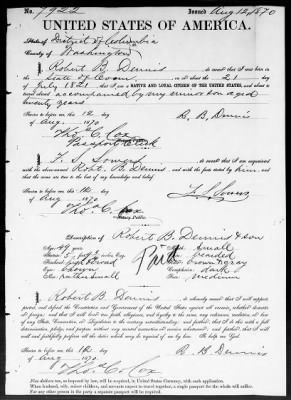 No. 7922 Issued Aug 12, 1870
UNITED STATES OF AMERICA.
State of District of Columbia
County of Washington
I, Robert B. Dennis do swear that I was born in the
State of on or about the 21 day of
July 1821 that I am a NATIVE AND LOYAL CITIZEN OF THE UNITED STATES, and about to
travel abroad accompanied by my minor son aged
twenty years
Sworn to before me this 12
day of Aug 1870 R. B. Dennis
Thos C. Cox
Passport Clerk
I, T. S. Sowers do swear that I am acquainted
with the above-named Robt. B. Dennis, and with the facts stated by him, and
that the same are true to the best of my knowledge and belief.
Sworn to before me this 12
day of Aug 1870 T. S. Sowers
Thos C. Cox
Notary Public.
Description of Robert B. Dennis & son
Age: 49 years Mouth: small
Stature: 5 feet inches, Eng. Chin: bearded
Forehead: Broad Hair: brown & gray
Eyes: Brown Complexion: dark
Nose: rather small Face: medium
I, Robert B. Dennis do solemnly swear that I will support,
protect and defend the Constitution and Government of the United States against all enemies, whether domestic
or foreign; and that I will bear true faith, allegiance, and loyalty to the same, any ordinance, resolution or law
of any State, Convention or Legislature to the contrary notwithstanding; and further, that I do this with a full
determination, pledge, and purpose, without any mental reservation or evasion whatsoever; and further, that I will
well and faithfully perform all the duties which may be required of me by law. So help me God.
Sworn to before me this 12
day of Aug 1870 R. B. Dennis
Thos C. Cox
Five dollars tax, as imposed by law, will be required, in United States Currency, with each application.
When husband, wife, minor children, and servants expect to travel together, a single passport for the whole will suffice.
For any other person in the party a separate passport will be required.